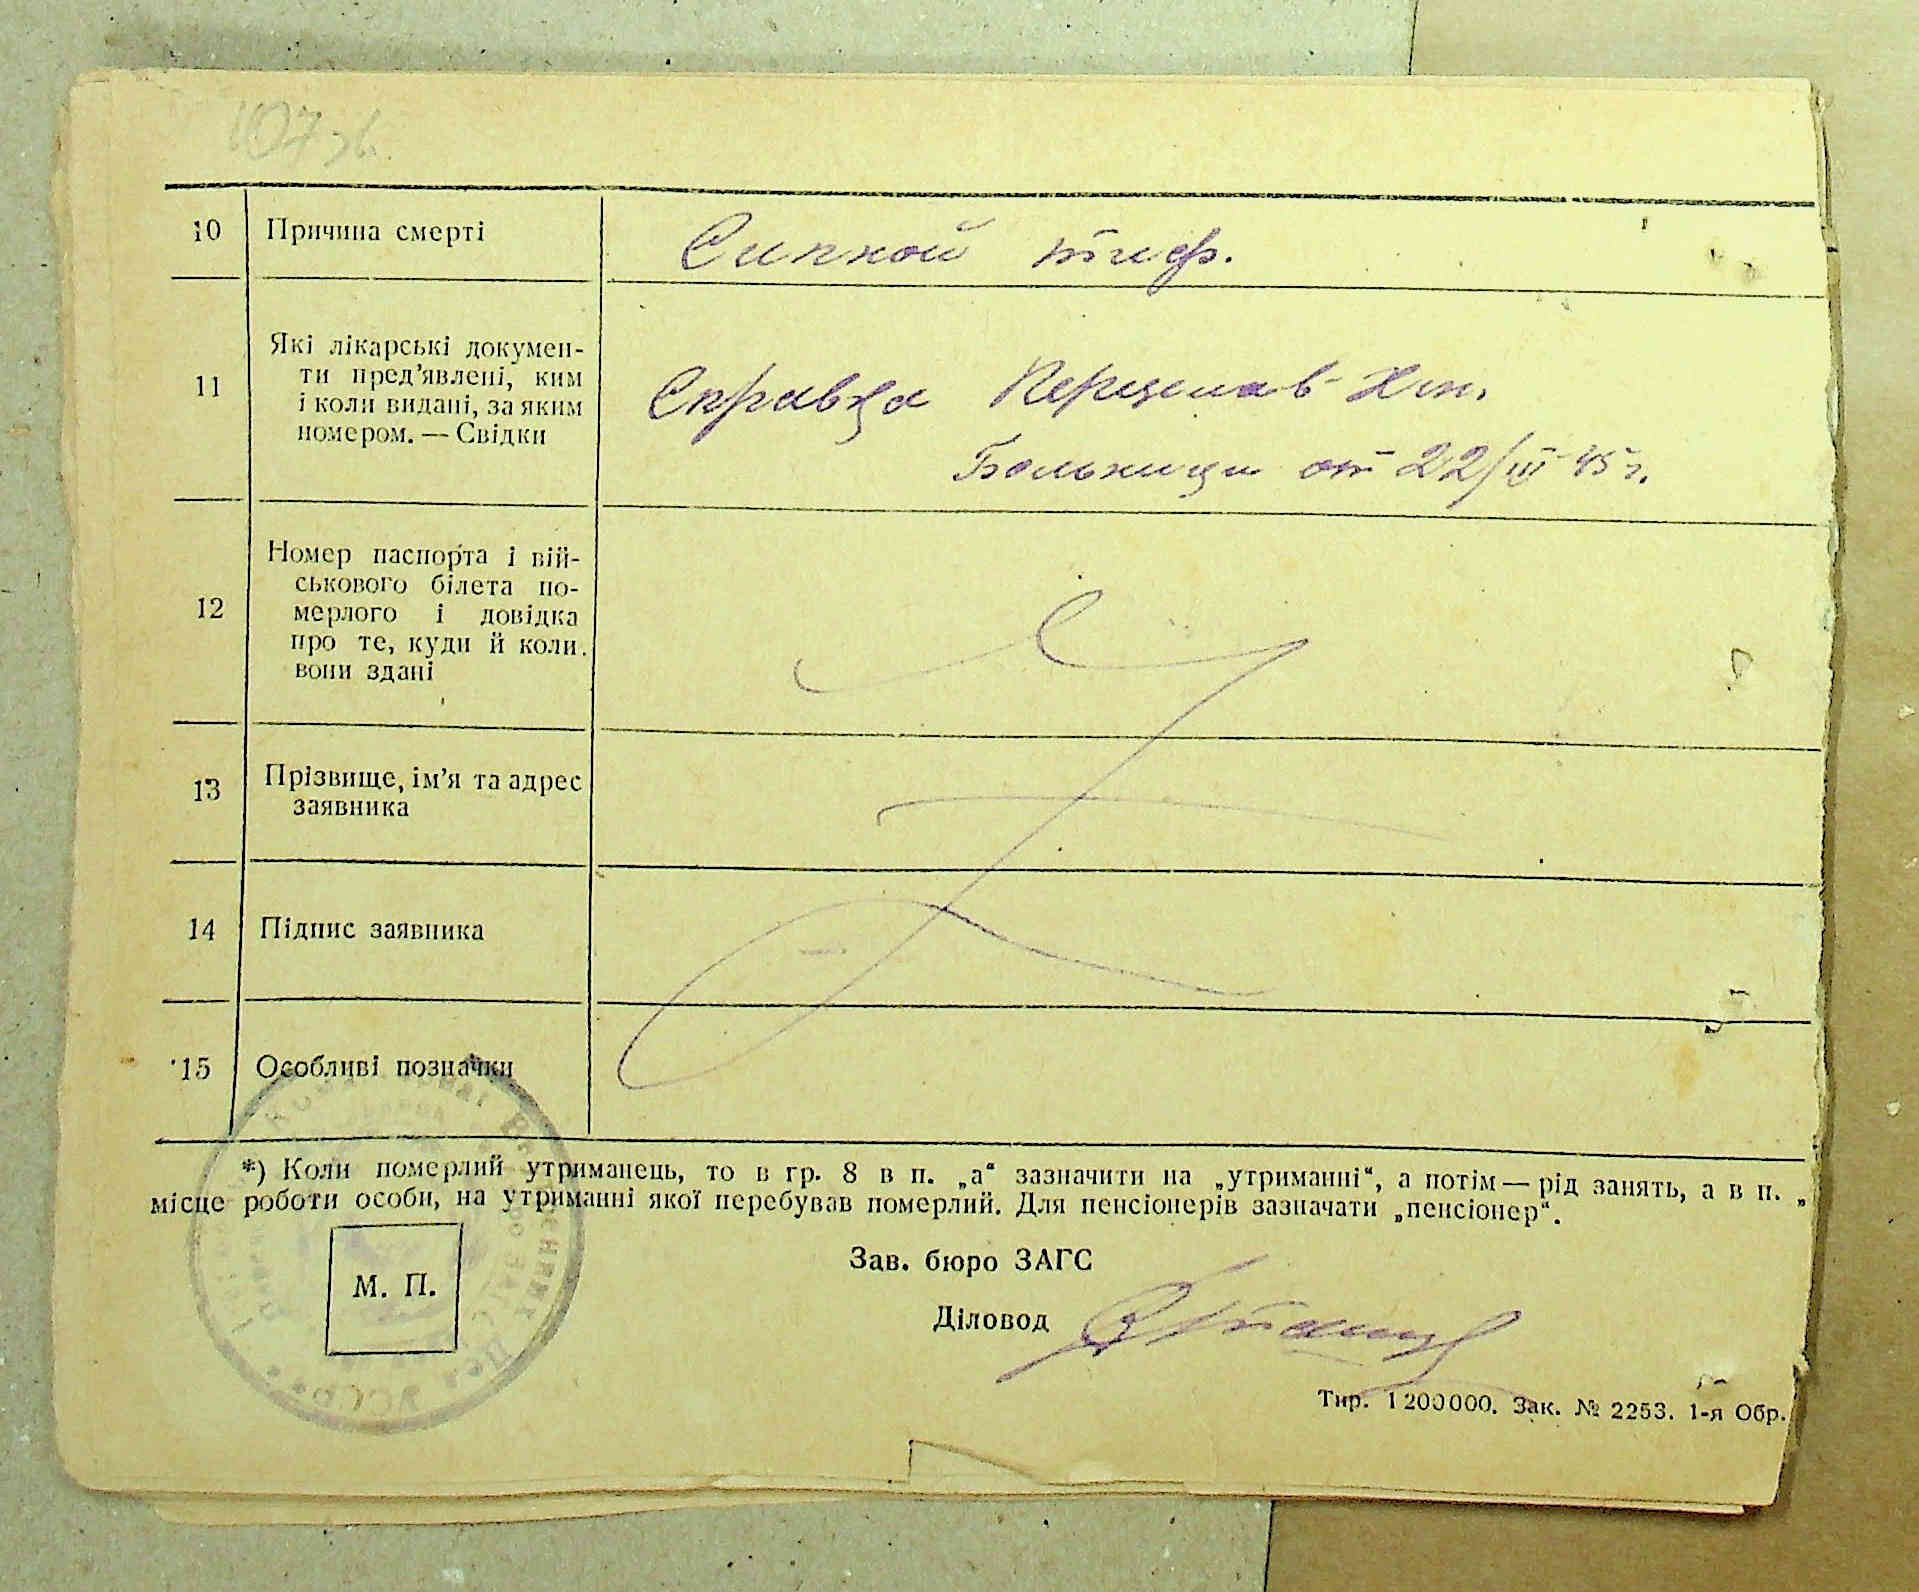 107 зв.
10 Причина смерті Сипной тиф.
11 Які лікарські докумен-
ти пред’явлені, ким
і коли видані, за яким
номером. — Свідки
Справка Переяслав-Хм.
Больници от 22/III 45 г.
12 Номер паспорта і вій-
ськового білета по-
мерлого і довідка
про те, куди й коли
вони здані
13 Прізвище, ім’я та адрес
заявника
14 Підпис заявника
15 Особливі позначки
*) Коли померлий утриманець, то в гр. 8 в п. „а“ зазначити на „утриманні“, а потім — рід занять, а в п. „
місце роботи особи, на утриманні якої перебував померлий. Для пенсіонерів зазначати „пенсіонер“.
М. П.
Зав. бюро ЗАГС
Діловод
Тир. 1200000. Зак. № 2253. 1-я Обр.